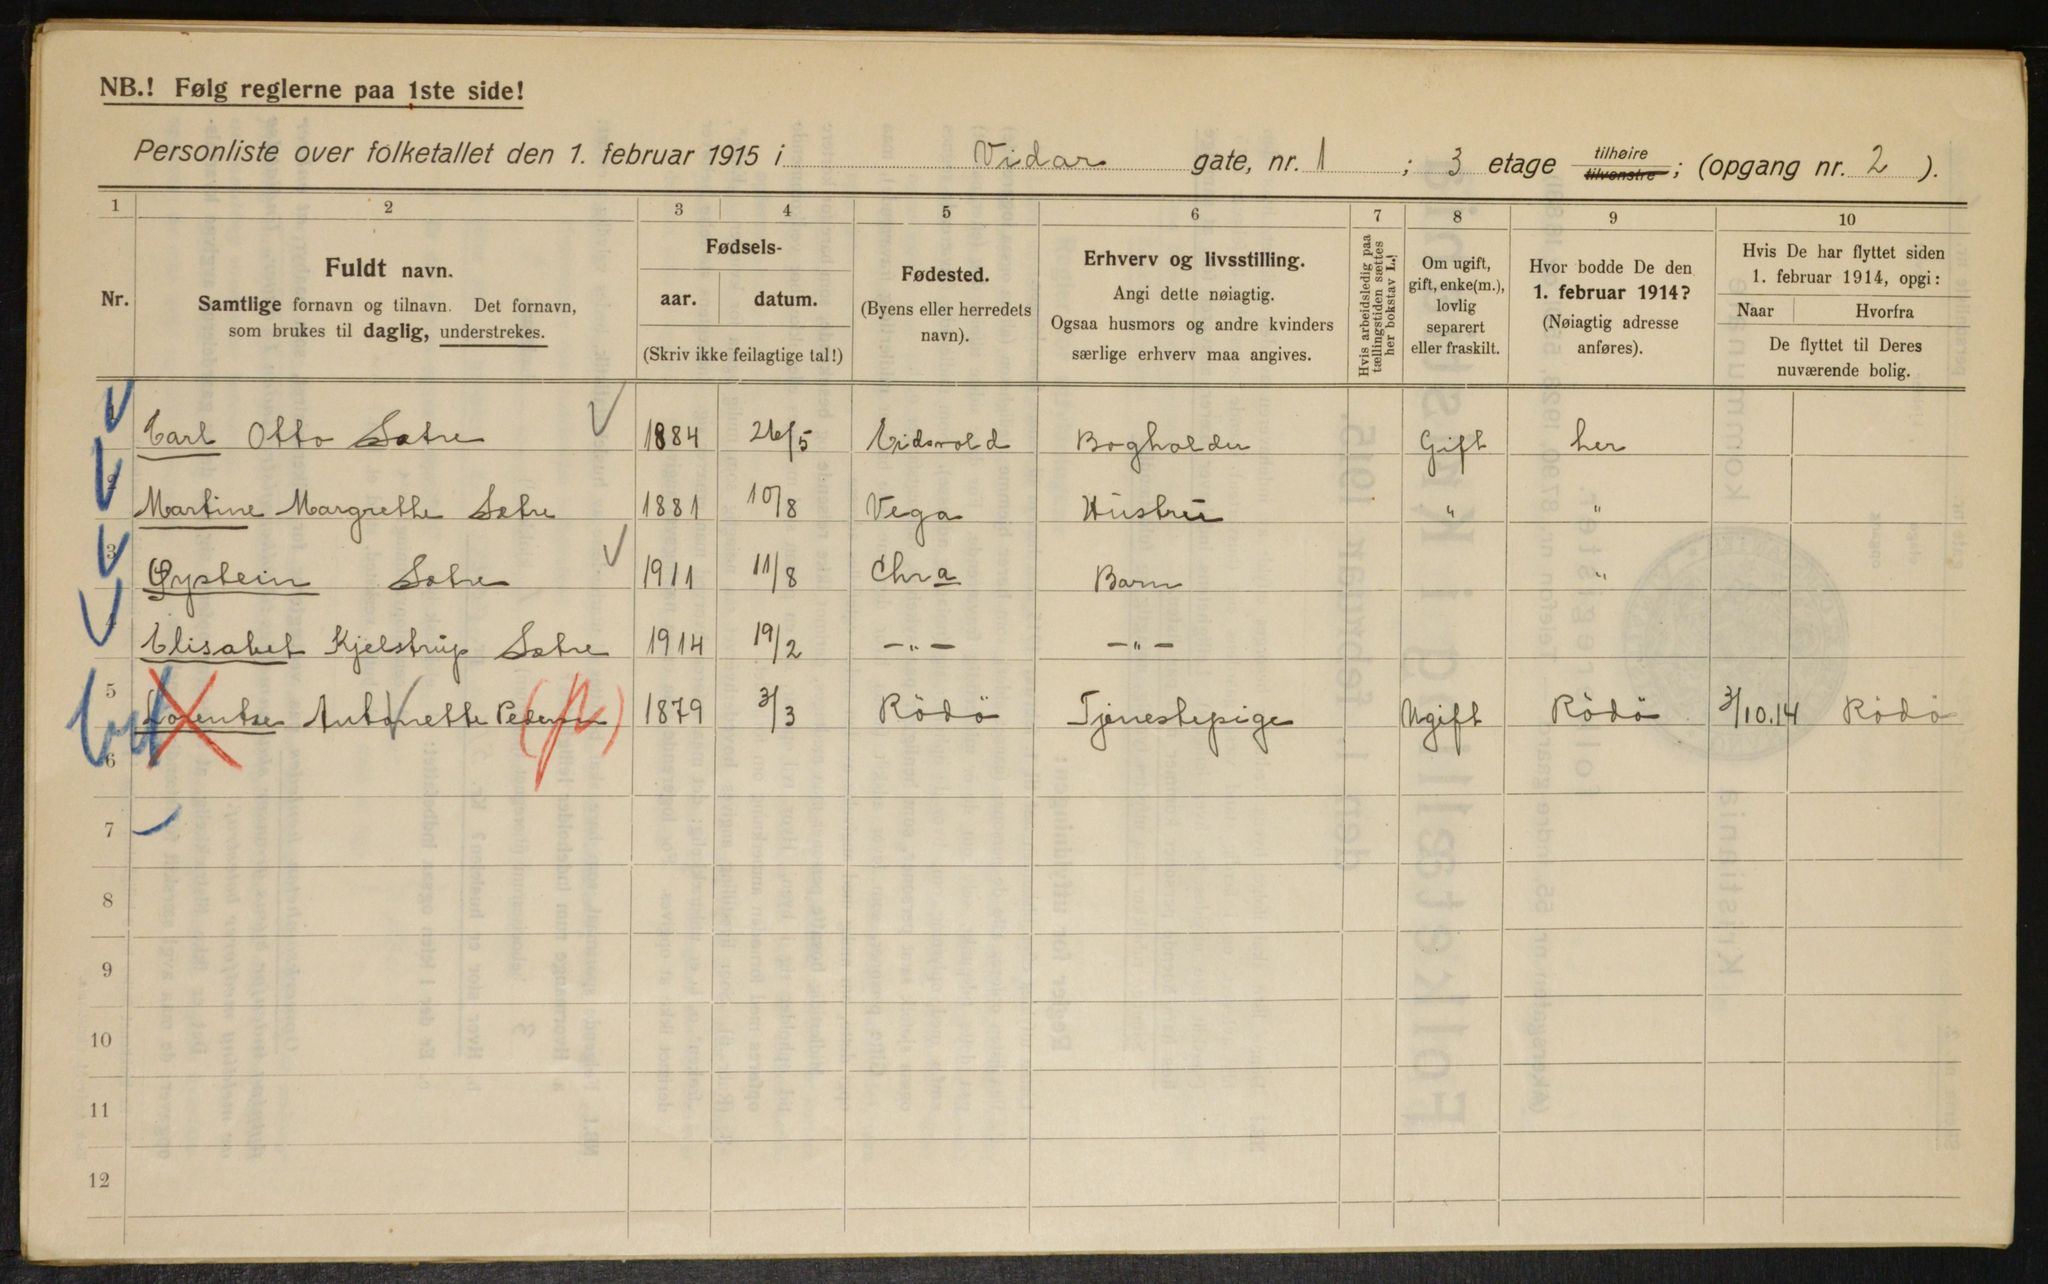 NB.! Følg reglerne paa 1ste side!
Personliste over folketallet den 1. februar 1915 i Vidar gate, nr. 1 ; 3 etage tilhøire tilvenstre; (opgang nr. 2 ).
1 2 3 4 5 6 7 8 9 10
Nr.
Fuldt navn.
Samtlige fornavn og tilnavn. Det fornavn,
som brukes til daglig, understrekes.
Fødsels-
aar. datum.
(Skriv ikke feilagtige tal!)
Fødested.
(Byens eller herredets
navn).
Erhverv og livsstilling.
Angi dette nøiagtig.
Ogsaa husmors og andre kvinders
særlige erhverv maa angives.
Hvis arbeidsledig paa
tællingstiden sættes
her bokstav L.!
Om ugift,
gift, enke(m.),
lovlig
separert
eller fraskilt.
Hvor bodde De den
1. februar 1914?
(Nøiagtig adresse
anføres).
Hvis De har flyttet siden
1. februar 1914, opgi:
Naar Hvorfra
De flyttet til Deres
nuværende bolig.
1 Carl Otto Sætre 1884 26/5 Eidsvold Bogholder Gift her
2 Martine Margrethe Sætre 1881 10/8 Vega Hustru " "
3 Øystein Sætre 1911 11/8 Chra Barn "
Elisabet Kjelstrup Sætre 1914 19/2 —"— —"—
5 Lorentze Antonette Pedersen 1879 3/3 Rödö Tjenestepige Ugift Rödö 3/10.14 Rödö
6
7
8
9
10
11
12